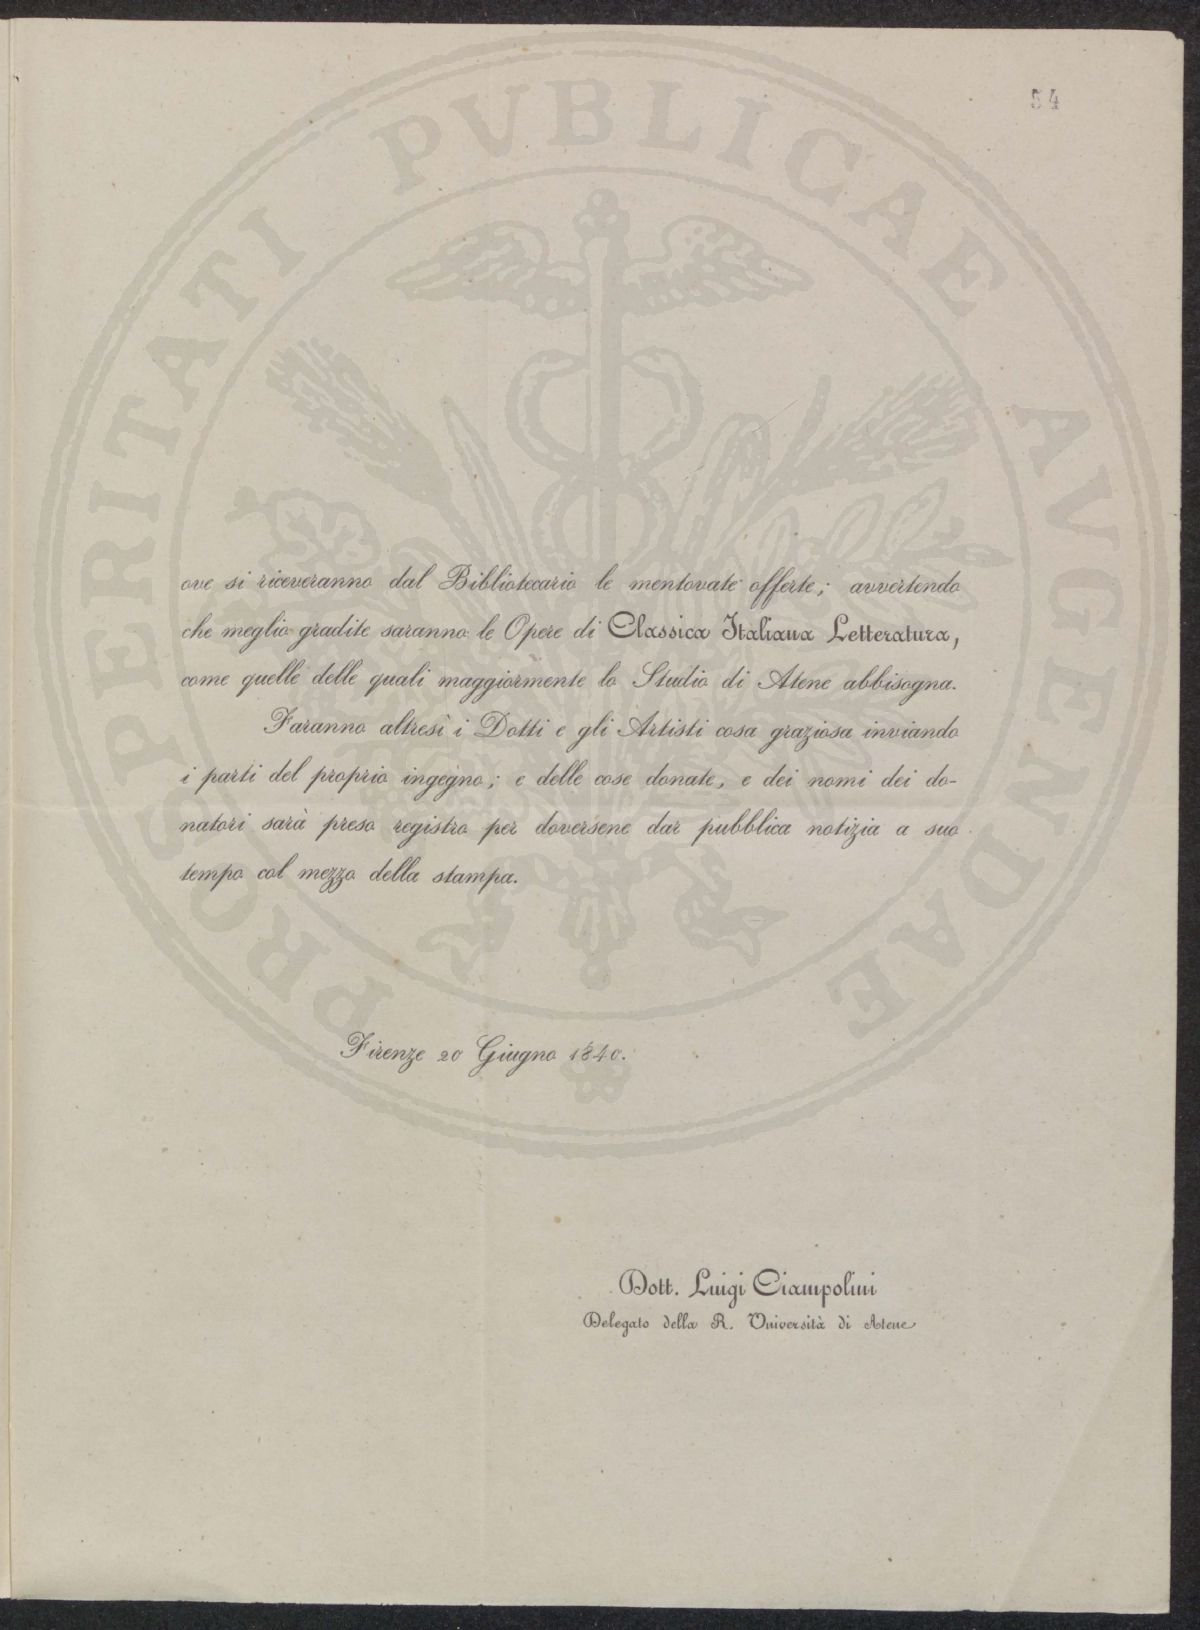 54
PROSPERITATI PVBLICAE AVGENDAE
ove si riceveranno dal Bibliotecario le mentovate offerte; avvertendo
che meglio gradite saranno le Opere di Classica Italiana Letteratura,
come quelle delle quali maggiormente lo Studio di Atene abbisogna.
Faranno altresì i Dotti e gli Artisti cosa graziosa inviando
i parti del proprio ingegno; e delle cose donate, e dei nomi dei do-
natori sarà preso registro per doversene dar pubblica notizia a suo
tempo col mezzo della stampa.
Firenze 20 Giugno 1840.
Dott. Luigi Ciampolini
Delegato della R. Università di Atene